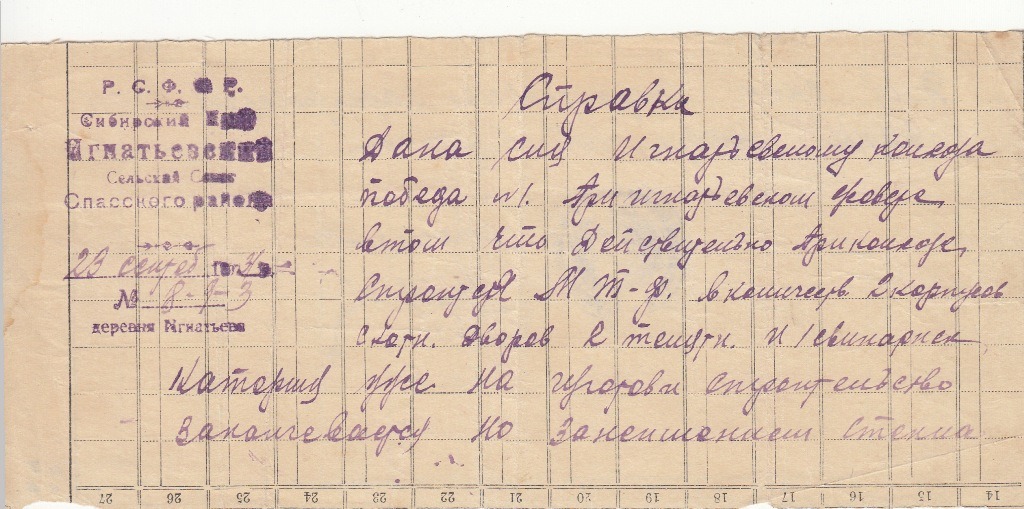 Р. С. Ф. С. Р.
Сибирский Край
Игнатьевский
Сельский Совет
Спасского района
23 сентеб 193 г.
№ 8-7-3
деревня Игнатьева
Справка
Дана сия Игнатьевскому колхоза
победа №1. При игнатьевском
втом что Действительно При колхозе,
строится М Т-Ф. в количеств. 2 корпусов
скотн. Дворов 2 телятн. и 1 свинарнек
Каторыя уже на строительство
Заканчевается но стекла
27 26 25 24 23 22 21 20 19 18 17 16 15 14